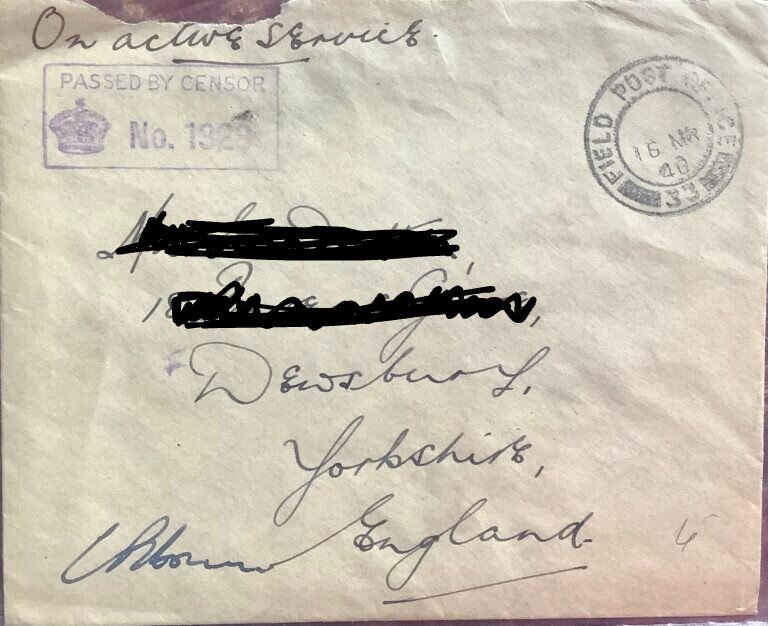 On active service.
PASSED BY CENSOR
No. 192
FIELD POST OFFICE
16 MR
40
33
Dewsbury,
Yorkshire,
England.